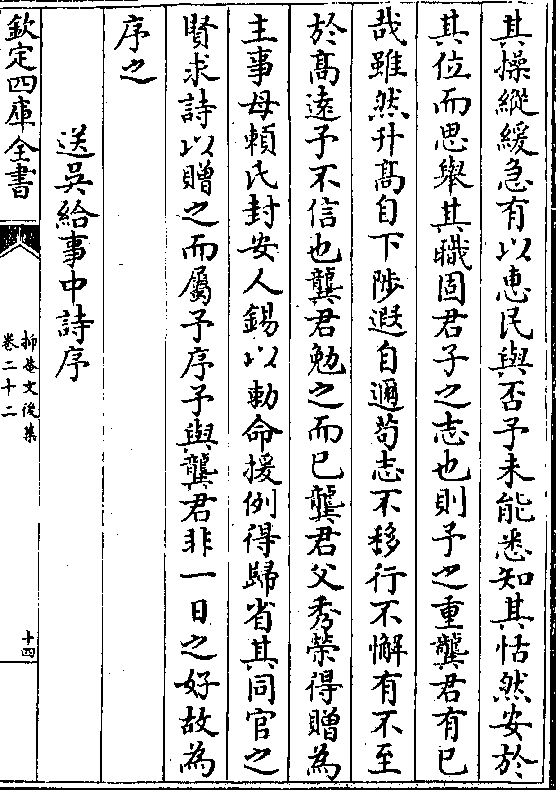 其操縱緩急有以惠民與否予未能悉知其恬然安於
其位而思舉其職固君子之志也則予之重龔君有已
哉雖然升髙自下陟遐自邇苟志不移行不懈有不至
於髙遠予不信也龔君勉之而已龔君父秀榮得贈為
主事母頼氏封安人錫以勅命援例得歸省其同官之
賢求詩以贈之而屬予序予與龔君非一日之好故為
序之
送吳給事中詩序
欽定四庫全書
抑菴文後集
卷二十二
十四